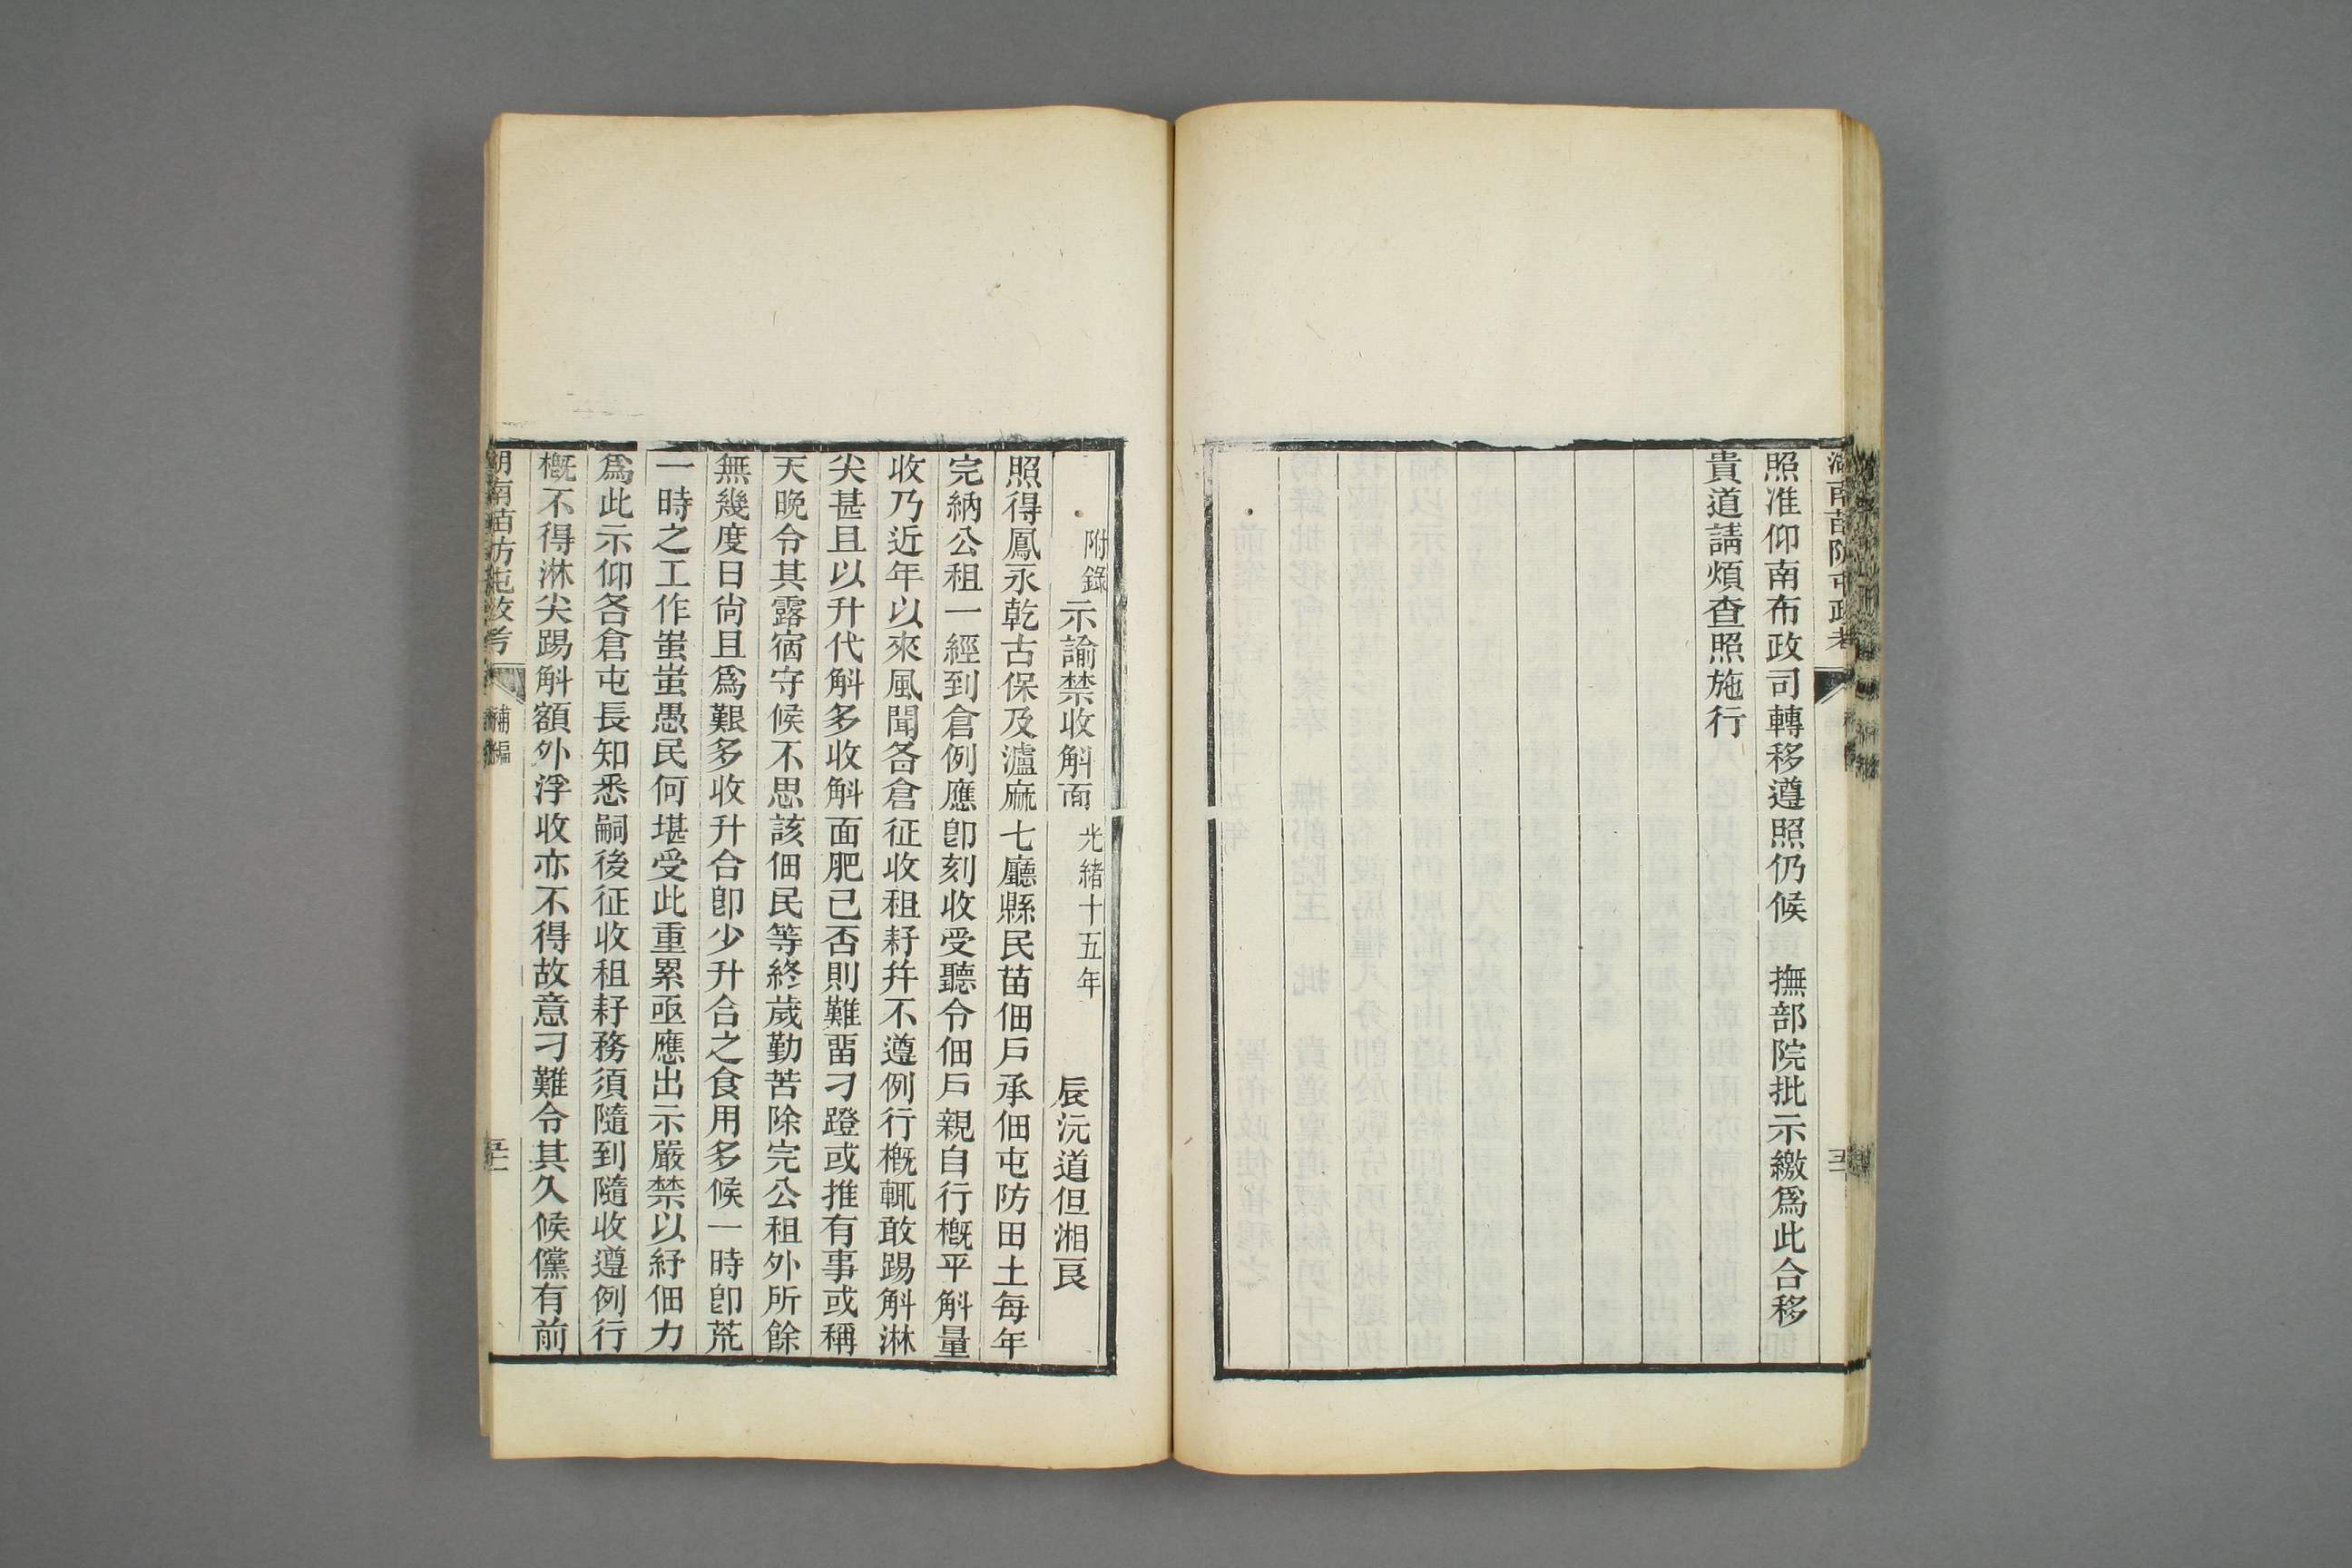 湖南苗防屯政考
照准仰南布政司轉移遵照仍候　撫部院批示繳爲此合移
貴道請煩查照施行
附錄示諭禁收斛面　光緒十五年　辰沅道但湘良
照得鳳永乾古保及瀘麻七廳縣民苗佃戶承佃屯防田土每年
完納公租一經到倉例應卽刻收受聽令佃戶親自行槪平斛量
收乃近年以來風聞各倉征收租籽幷不遵例行槪輒敢踢斛淋
尖甚且以升代斛多收斛面肥己否則難畱刁蹬或推有事或稱
天晚令其露宿守候不思該佃民等終歲勤苦除完公租外所餘
無幾度日尙且爲艱多收升合卽少升合之食用多候一時卽荒
一時之工作蚩蚩愚民何堪受此重累亟應出示嚴禁以紓佃力
爲此示仰各倉屯長知悉嗣後征收租籽務須隨到隨收遵例行
槪不得淋尖踢斛額外浮收亦不得故意刁難令其久候儻有前
湖南苗防屯政考　補編